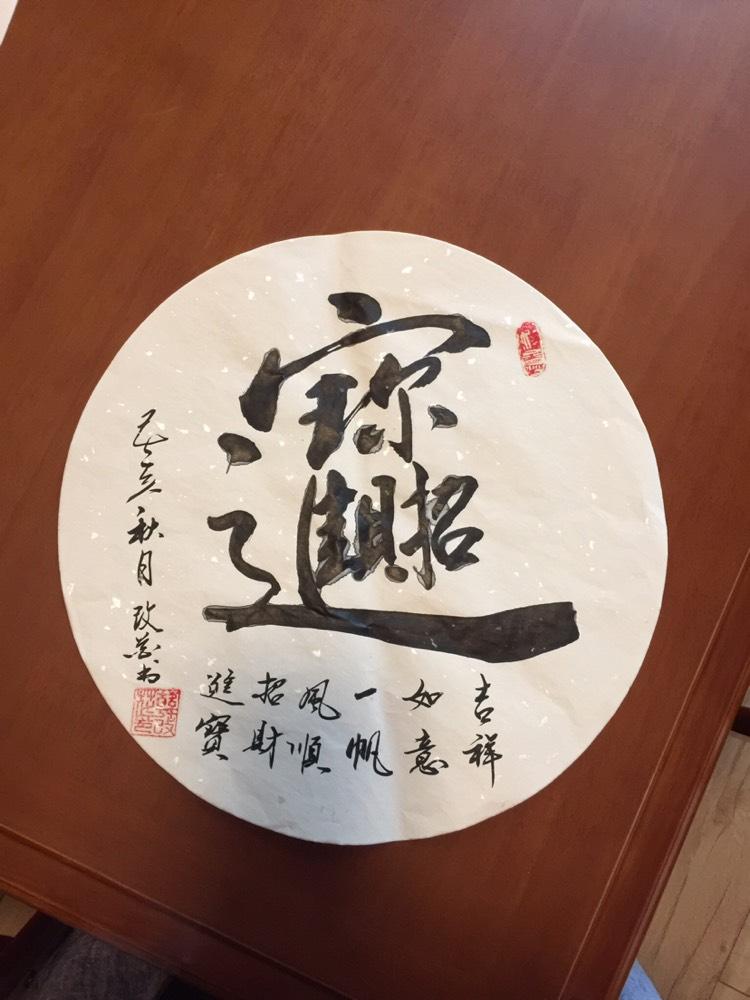 招財進寶
吉祥
如意
一帆
風順
招財
進寶
己亥秋月政书